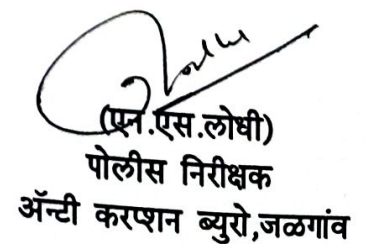 (एन.एस.लोधी)
पोलीस निरीक्षक
ॲन्टी करप्शन ब्युरो,जळगांव